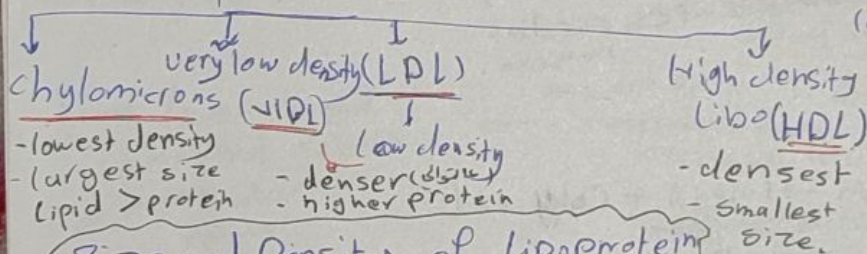 chylomicrons
- lowest density
- largest size
lipid > protein
very low density
(VLDL)
(LDL)
low density
- denser
- higher protein
High density
Libo (HDL)
- densest
- smallest
size.
Density of lipoprotein